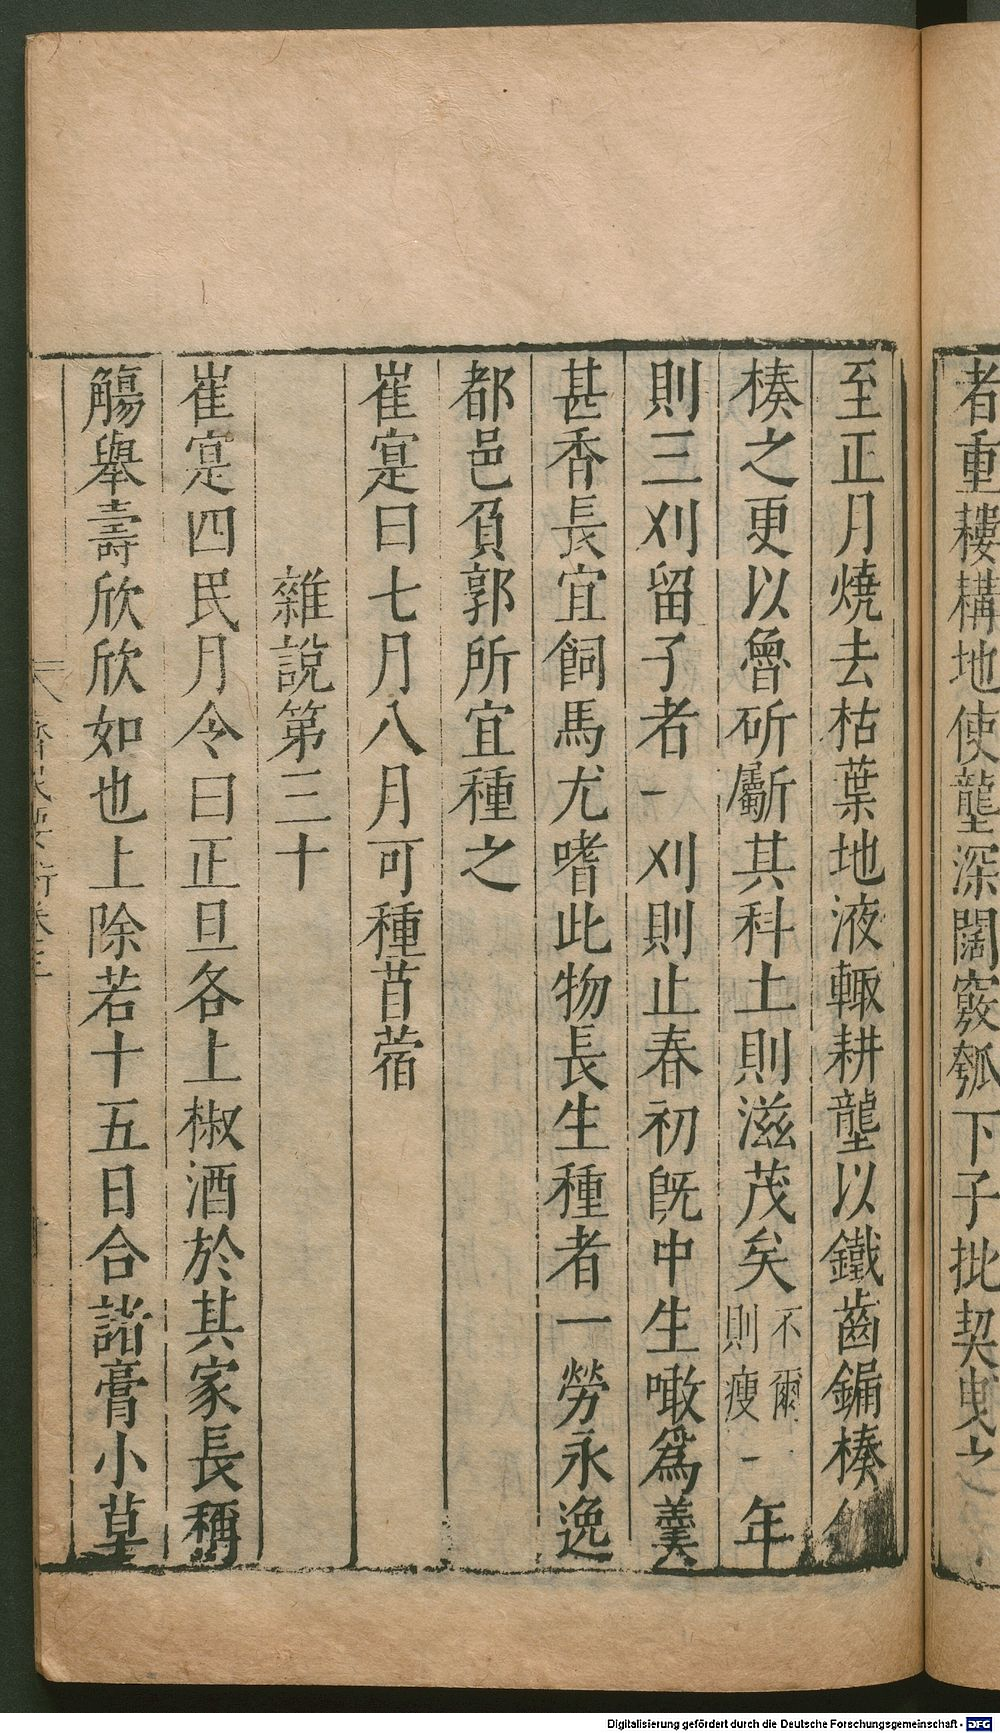 者重耬構地使壟深闊竅瓠下子批契曳之
至正月燒去枯葉地液輙耕壟以鐵齒鎒楱
楱之更以魯斫斸其科土則滋茂矣不爾則瘦一年
則三刈留子者一刈則止春初旣中生噉爲羹
甚香長宜飼馬尤嗜此物長生種者一勞永逸
都邑負郭所宜種之
崔寔曰七月八月可種苜蓿
雜說第三十
崔寔四民月令曰正旦各上椒酒於其家長稱
觴舉壽欣欣如也上除若十五日合諸膏小草
Digitalisierung gefördert durch die Deutsche Forschungsgemeinschaft - DFG